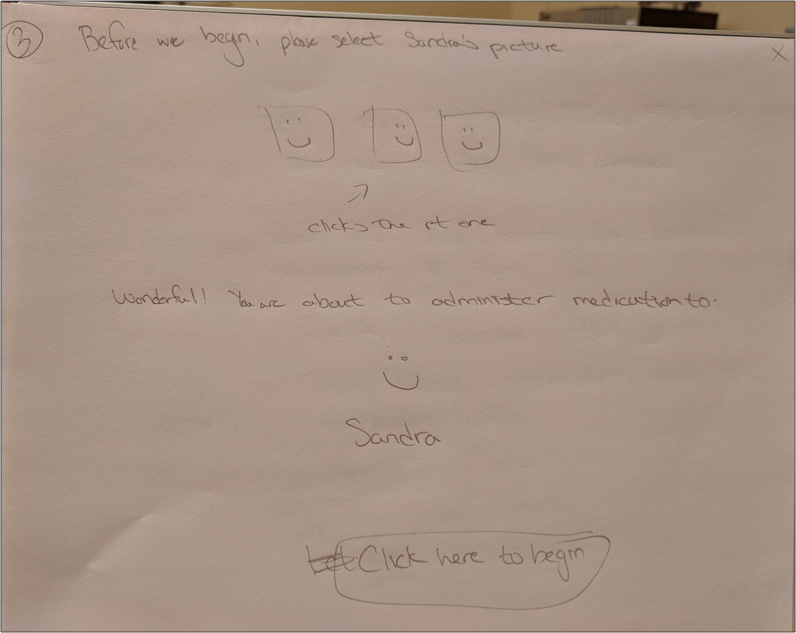 3 Before we begn, please select Sandra's picture X
clicks the rt one
Wonderful! You are about to administer medication to:
Sandra
Let Click here to begin